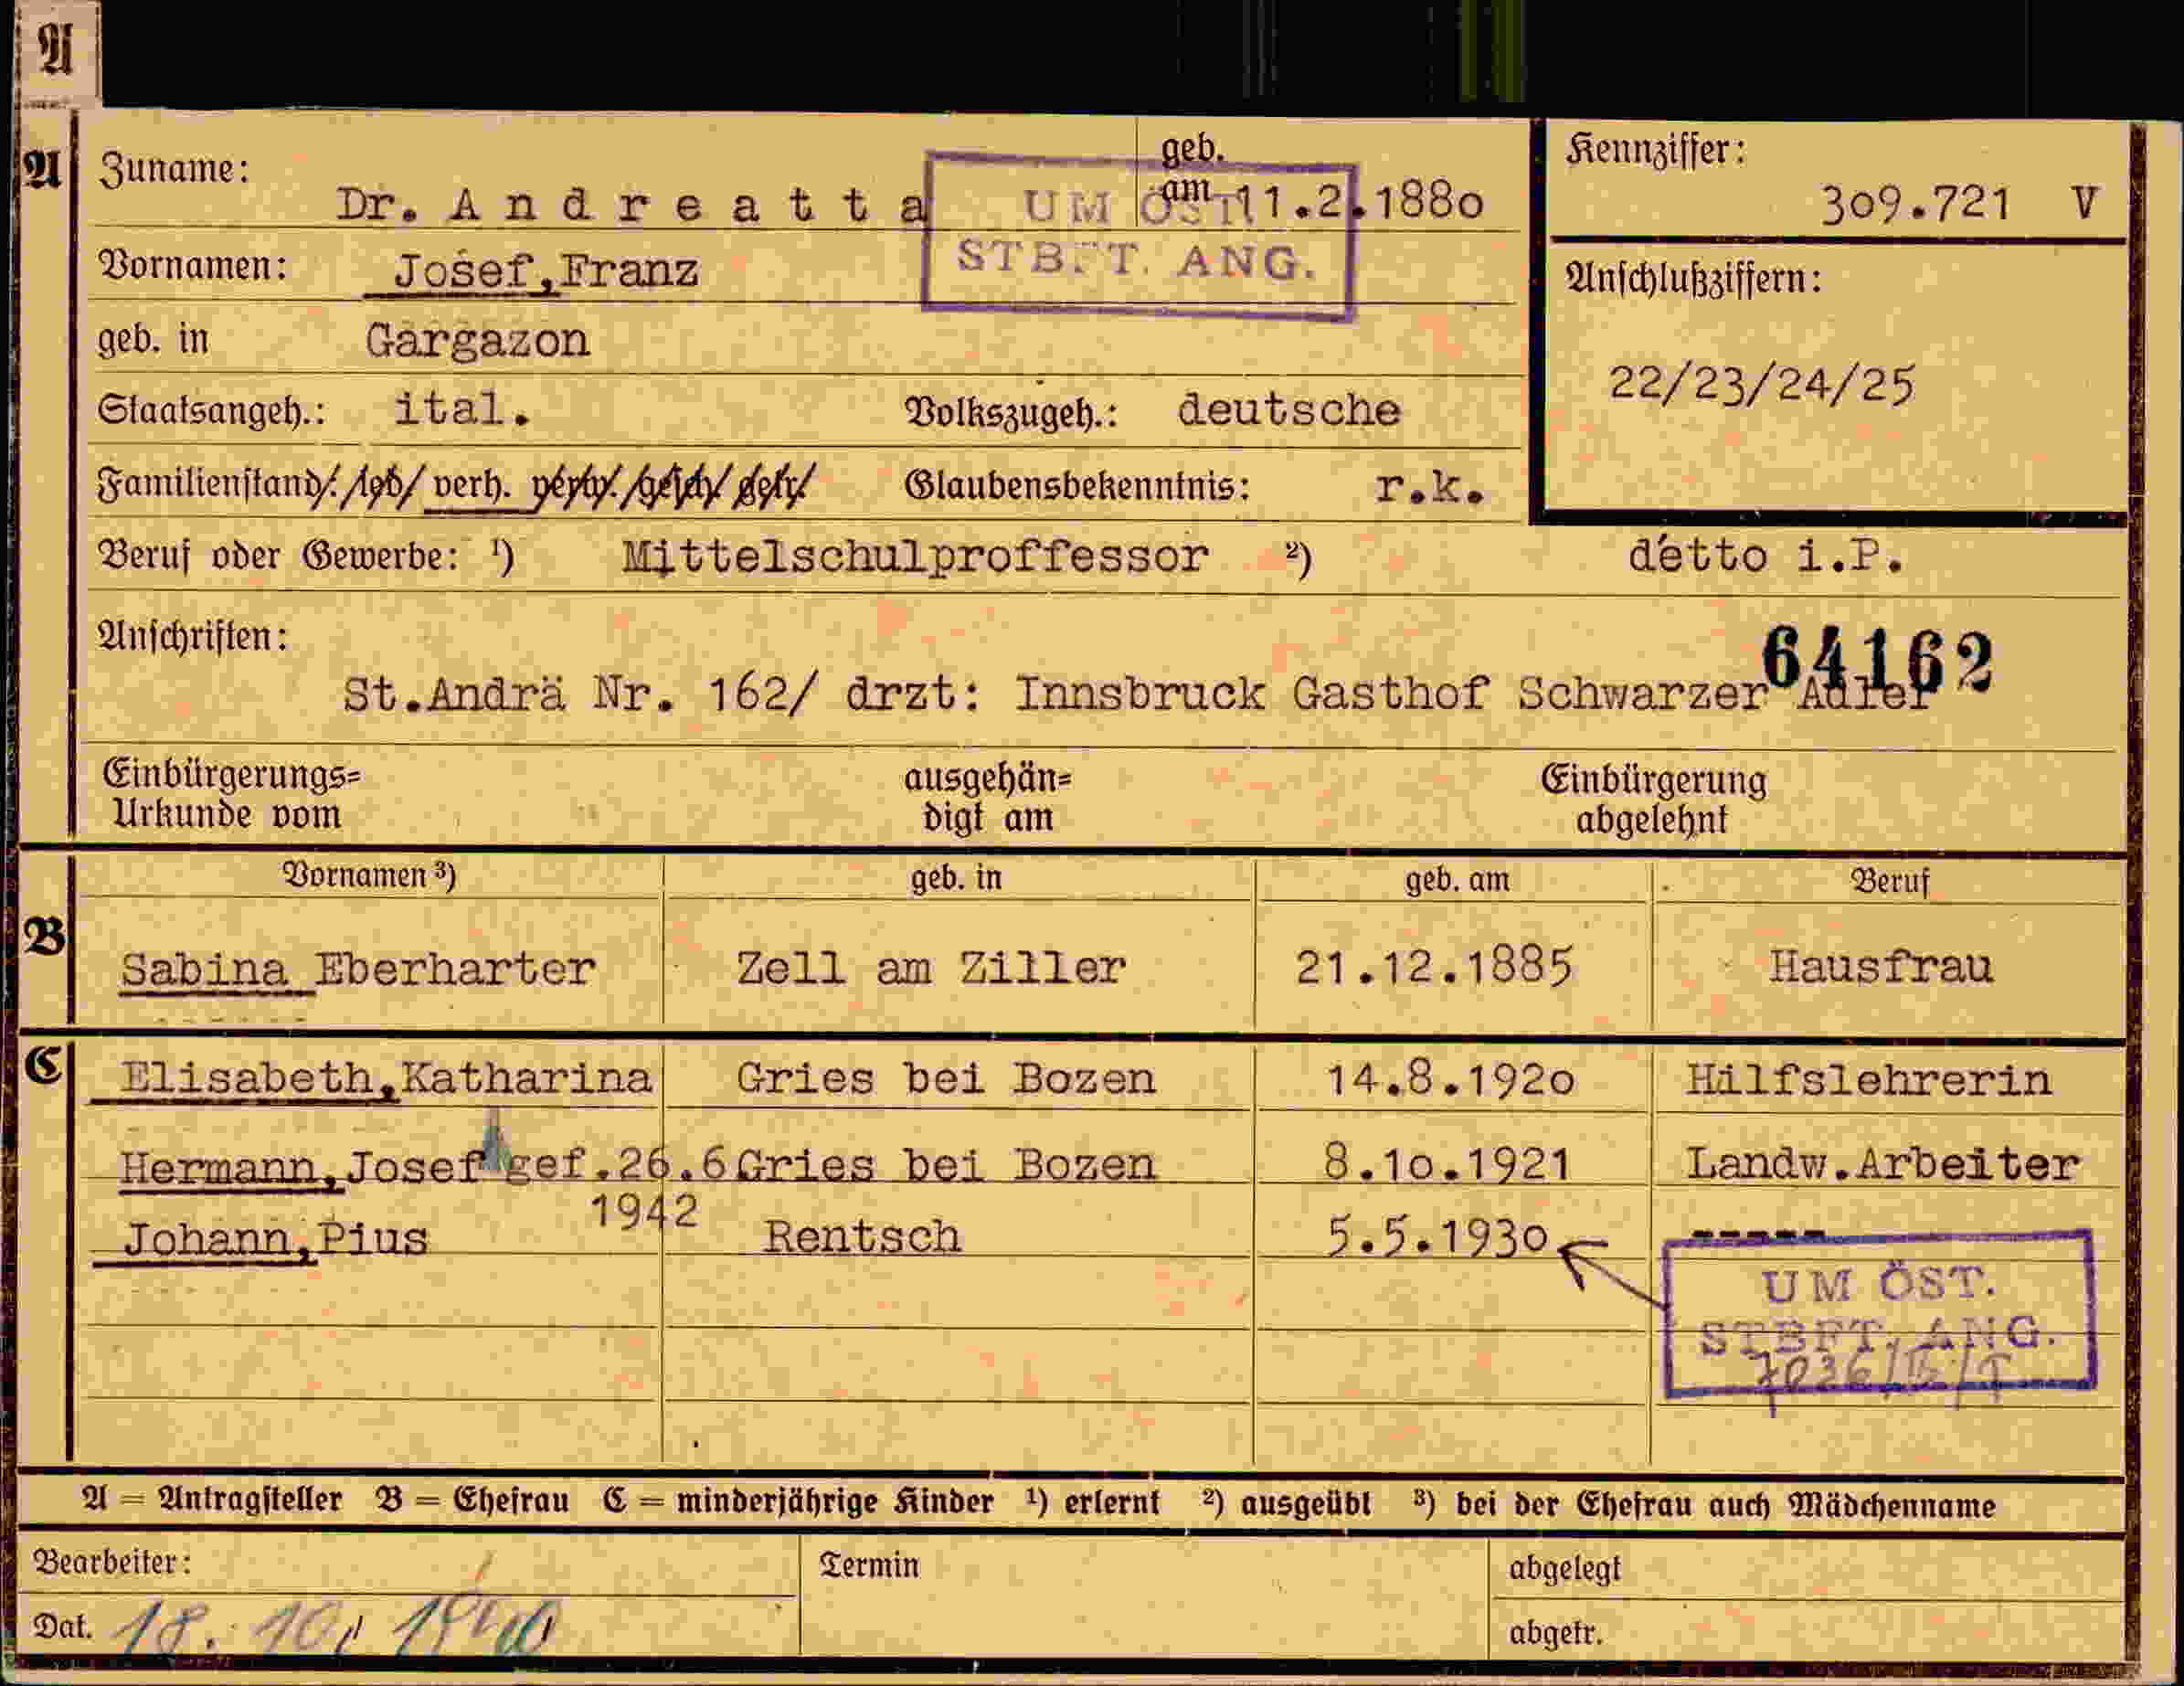 A
A Zuname: Dr. Andreatta geb. am 11.2.1880 Kennziffer: 309.721 V
UM ÖST.
STBFT. ANG.
Vornamen: Josef,Franz Anschlußziffern:
geb. in Gargazon 22/23/24/25
Staatsangeh.: ital. Volkszugeh.: deutsche
Familienstand: led. verh. verw. gesch. getr. Glaubensbekenntnis: r.k.
Beruf oder Gewerbe: ¹) Mittelschulproffessor ²) detto i.P.
Anschriften: 64162
St.Andrä Nr. 162/ drzt: Innsbruck Gasthof Schwarzer Adler
Einbürgerungs= ausgehän= Einbürgerung
Urkunde vom digt am abgelehnt
Vornamen ³) geb. in geb. am Beruf
B Sabina Eberharter Zell am Ziller 21.12.1885 Hausfrau
C Elisabeth,Katharina Gries bei Bozen 14.8.1920 Hilfslehrerin
Hermann,Josef gef.26.6 Gries bei Bozen 8.10.1921 Landw.Arbeiter
1942
Johann,Pius Rentsch 5.5.1930 -----
UM ÖST.
STBFT. ANG.
A = Antragsteller B = Ehefrau C = minderjährige Kinder ¹) erlernt ²) ausgeübt ³) bei der Ehefrau auch Mädchenname
Bearbeiter: Termin abgelegt
Dat. 18. 10. 1940 abgetr.